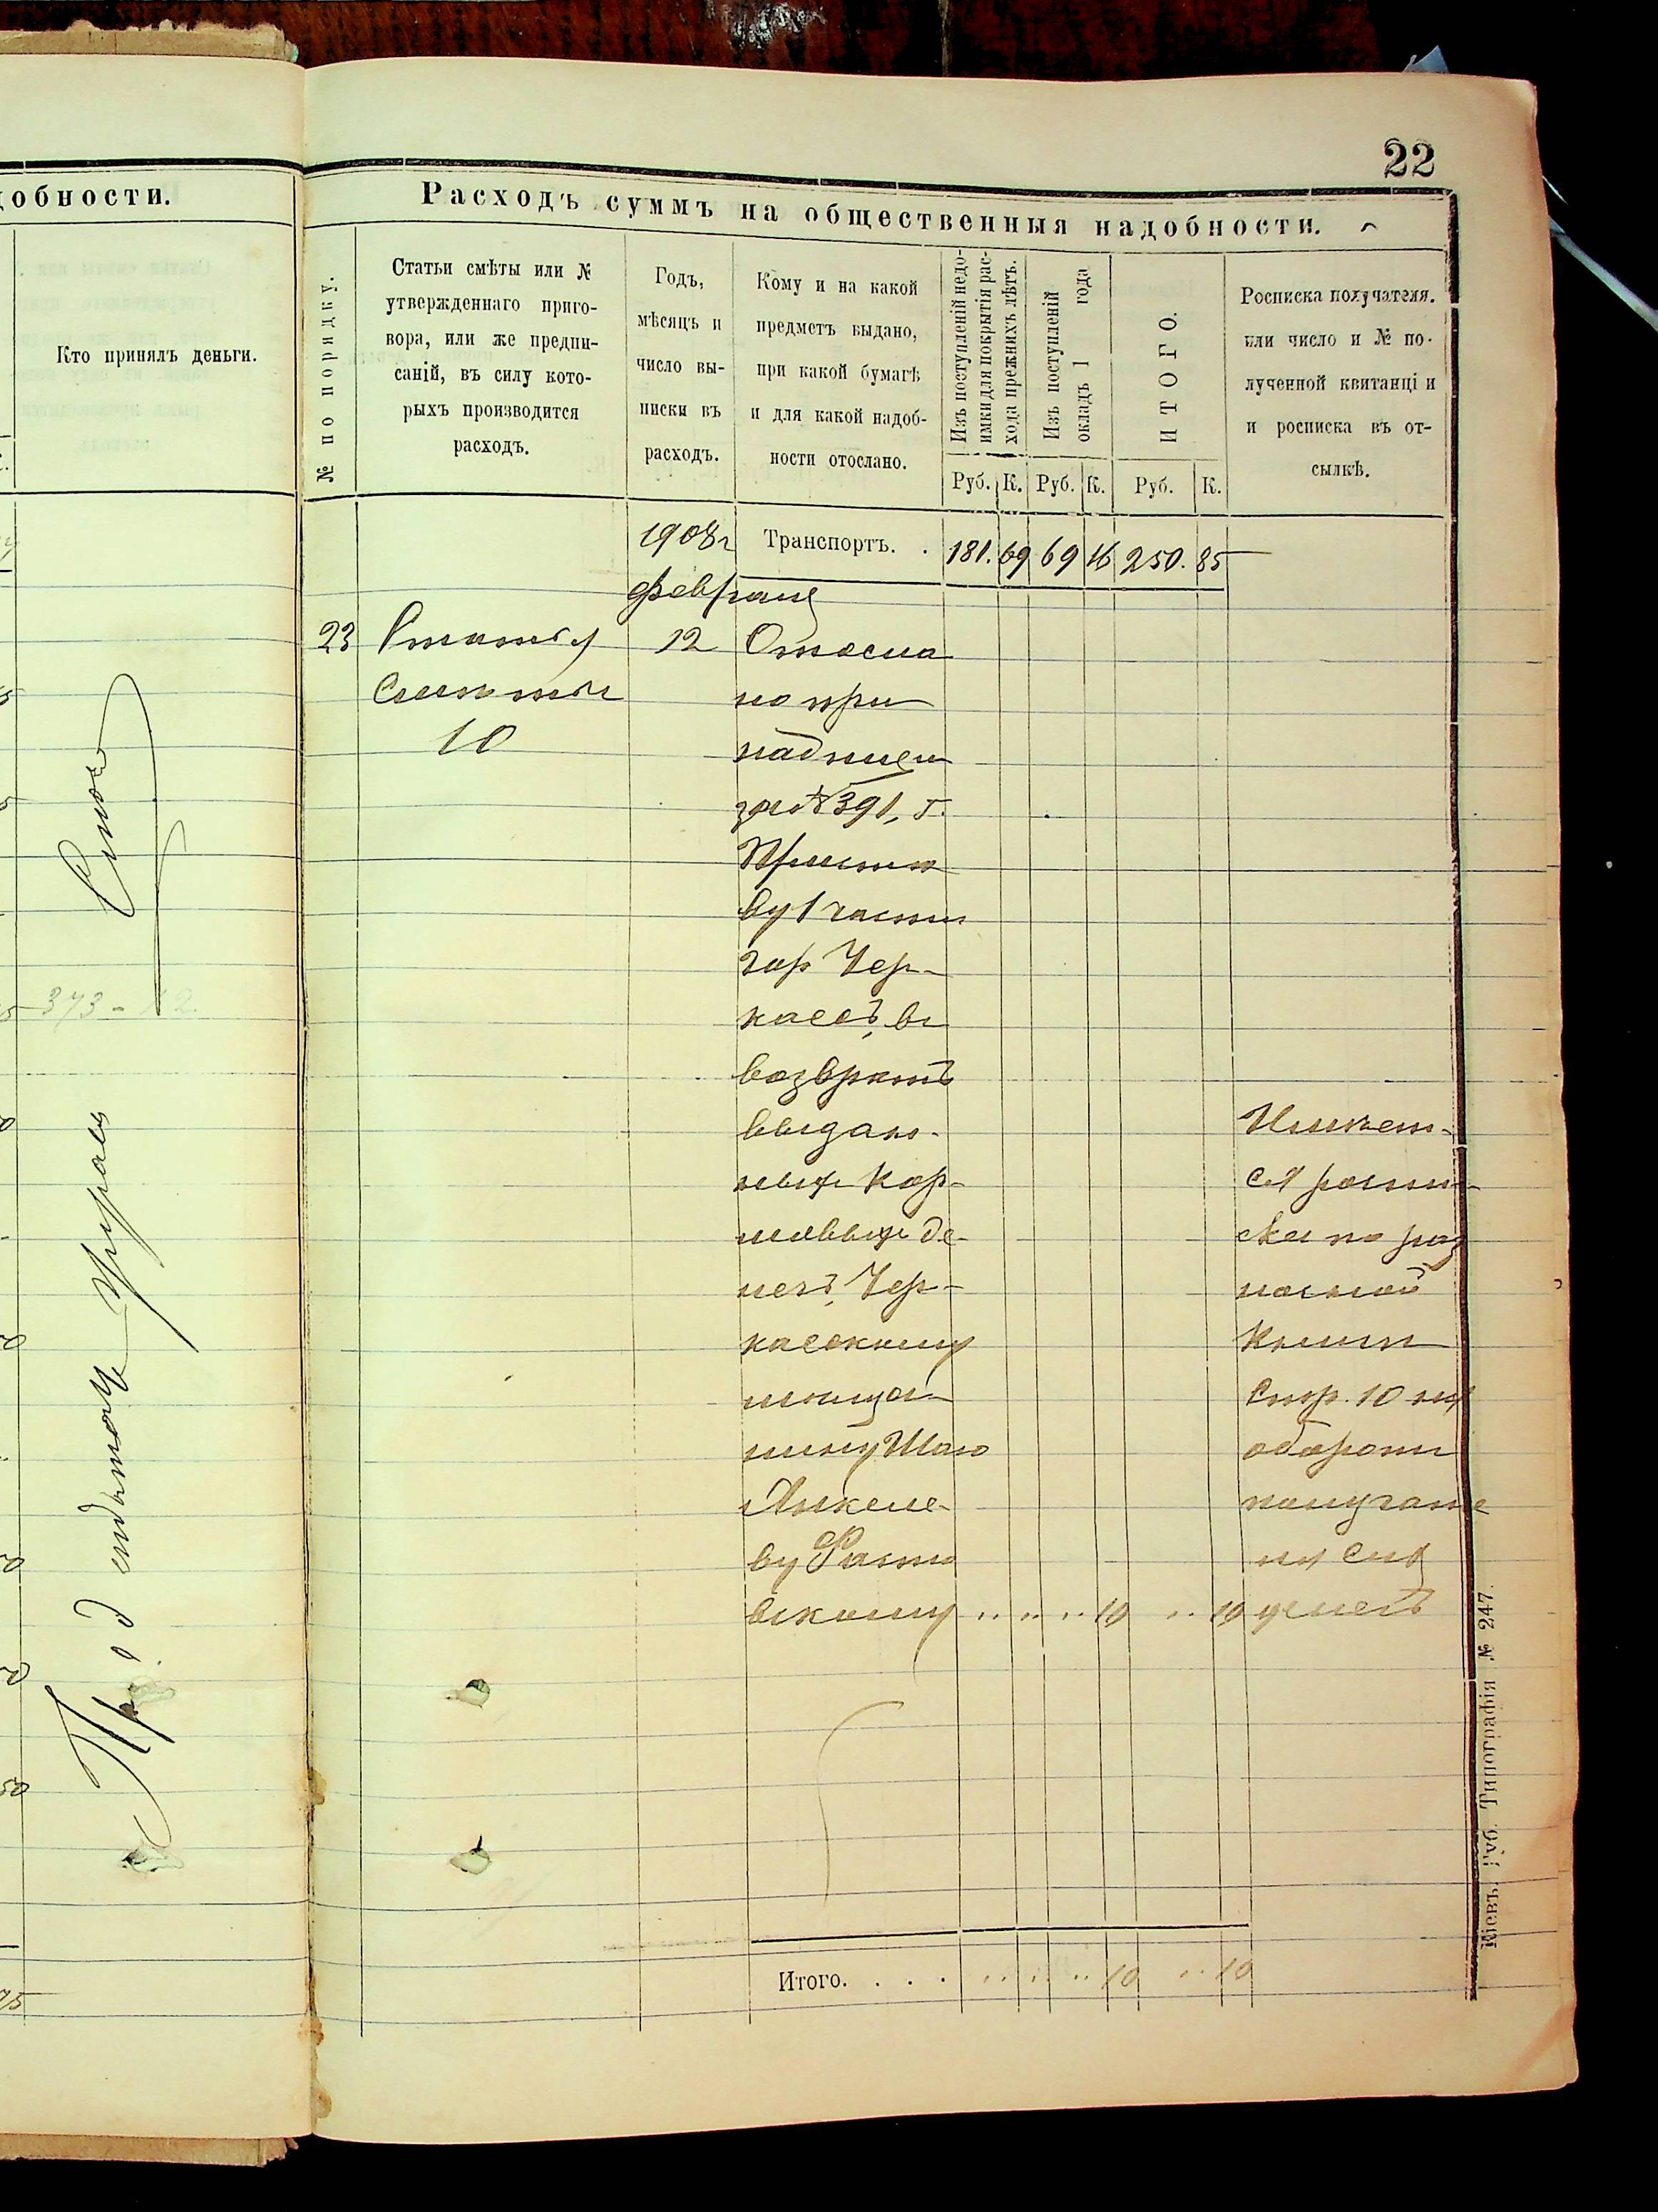 22
добности.
Кто принялъ деньги.
373 - 12.
Расходъ суммъ на общественныя надобности.
№ по порядку.
Статьи смѣты или №
утвержденнаго приго-
вора, или же предпи-
саній, въ силу кото-
рыхъ производится
расходъ.
Годъ,
мѣсяцъ и
число вы-
писки въ
расходъ.
Кому и на какой
предметъ выдано,
при какой бумагѣ
и для какой надоб-
ности отослано.
Изъ поступленій недо-
имки для покрытія рас-
хода прежнихъ лѣтъ.
Изъ поступленій
окладъ 1 года
ИТОГО.
Росписка получателя.
или число и № по-
лученной квитанціи
и росписка въ от-
сылкѣ.
Руб. К. Руб. К. Руб. К.
1908г Транспортъ. . 181. 69 69 16 250. 85
февраля
23 Статья 12 Отосла
смѣты но при
10 надписи
за №391, г.
Приста
ву 1 части
гор Чер-
кассъ, въ
возвратъ
выдан-
ныхъ кор-
мовыхъ де-
негъ, Чер-
касскому
мѣща-
нину
Янкеле-
ву
вскому .. .. .. 10 .. 10
Имѣет-
ся роспи-
ска по раз
носной
книги
стр. 10 на
оборотѣ
Итого. . . . .. .. .. 10 .. 10
Кіевъ. Губ. Типографія № 247.